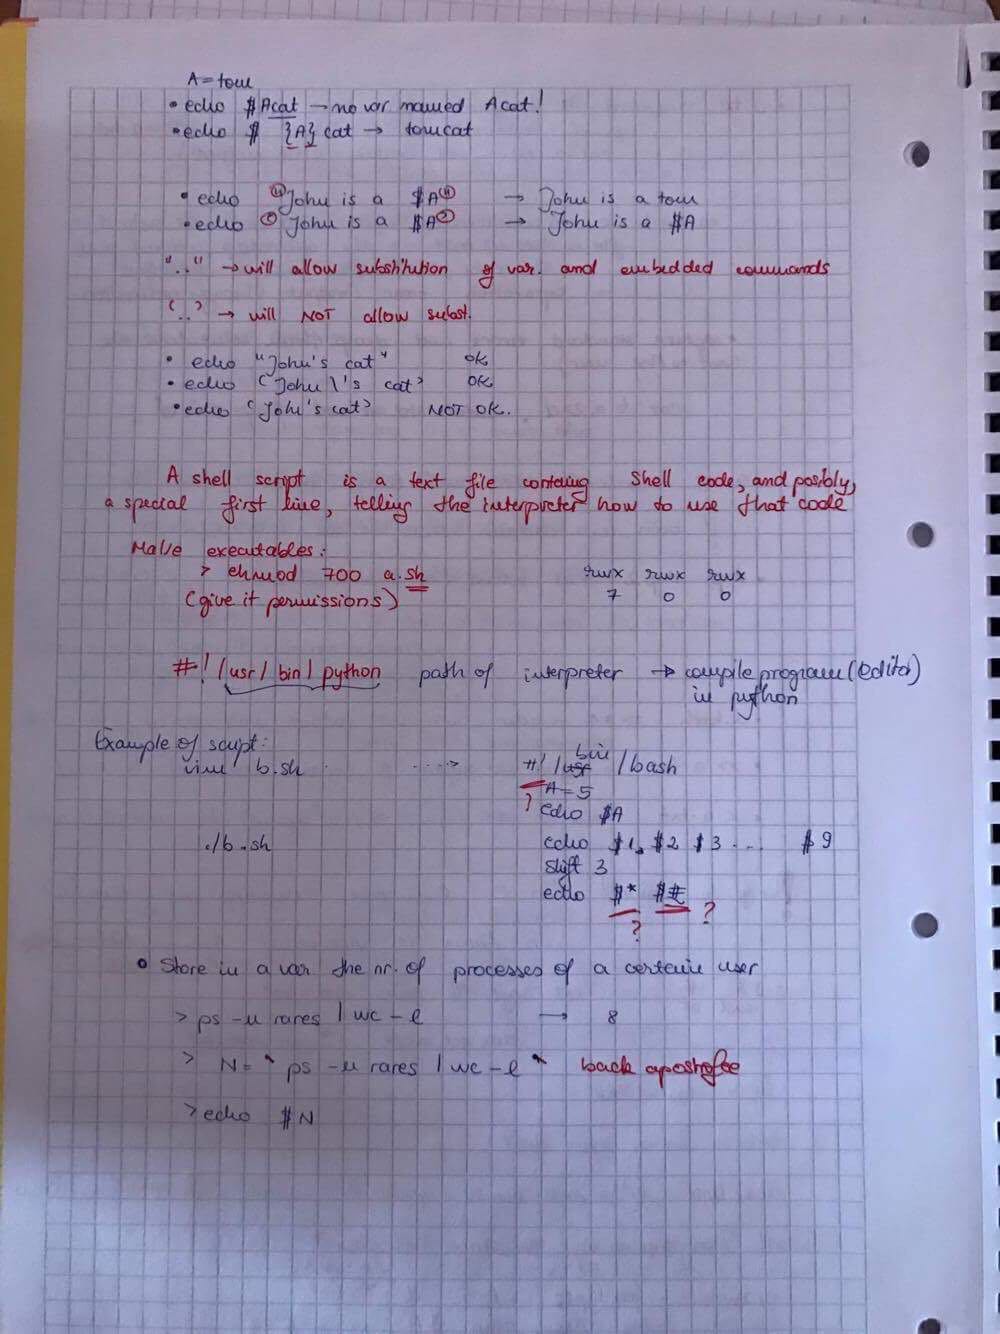 A = tom
• echo $Acat → no var named Acat!
• echo $ {A} cat → tomcat
• echo "John is a $A" → John is a tom
• echo 'John is a $A' → John is a $A
".." → will allow substitution of var. and embedded commands
'..' → will NOT allow subst.
• echo "John's cat" OK
• echo 'John\'s cat' OK
• echo 'John's cat' NOT OK.
A shell script is a text file containg shell code, and posibly,
a special first line, telling the interpreter how to use that code
Make executables:
> chmod 700 a.sh rwx rwx rwx
(give it permissions) 7 0 0
#! /usr/ bin/ python path of interpreter → compile program (editor)
in python
Example of script:
vim b.sh ....> #! /usr bin /bash
? A = 5
echo $A
./b.sh echo $1, $2 $3 ... $9
shift 3
echo $* $#
? ?
• Store in a var the nr. of processes of a certain user
> ps -u rares | wc -l → 8
> N = ` ps -u rares | wc -l ` back apostrofee
> echo $N